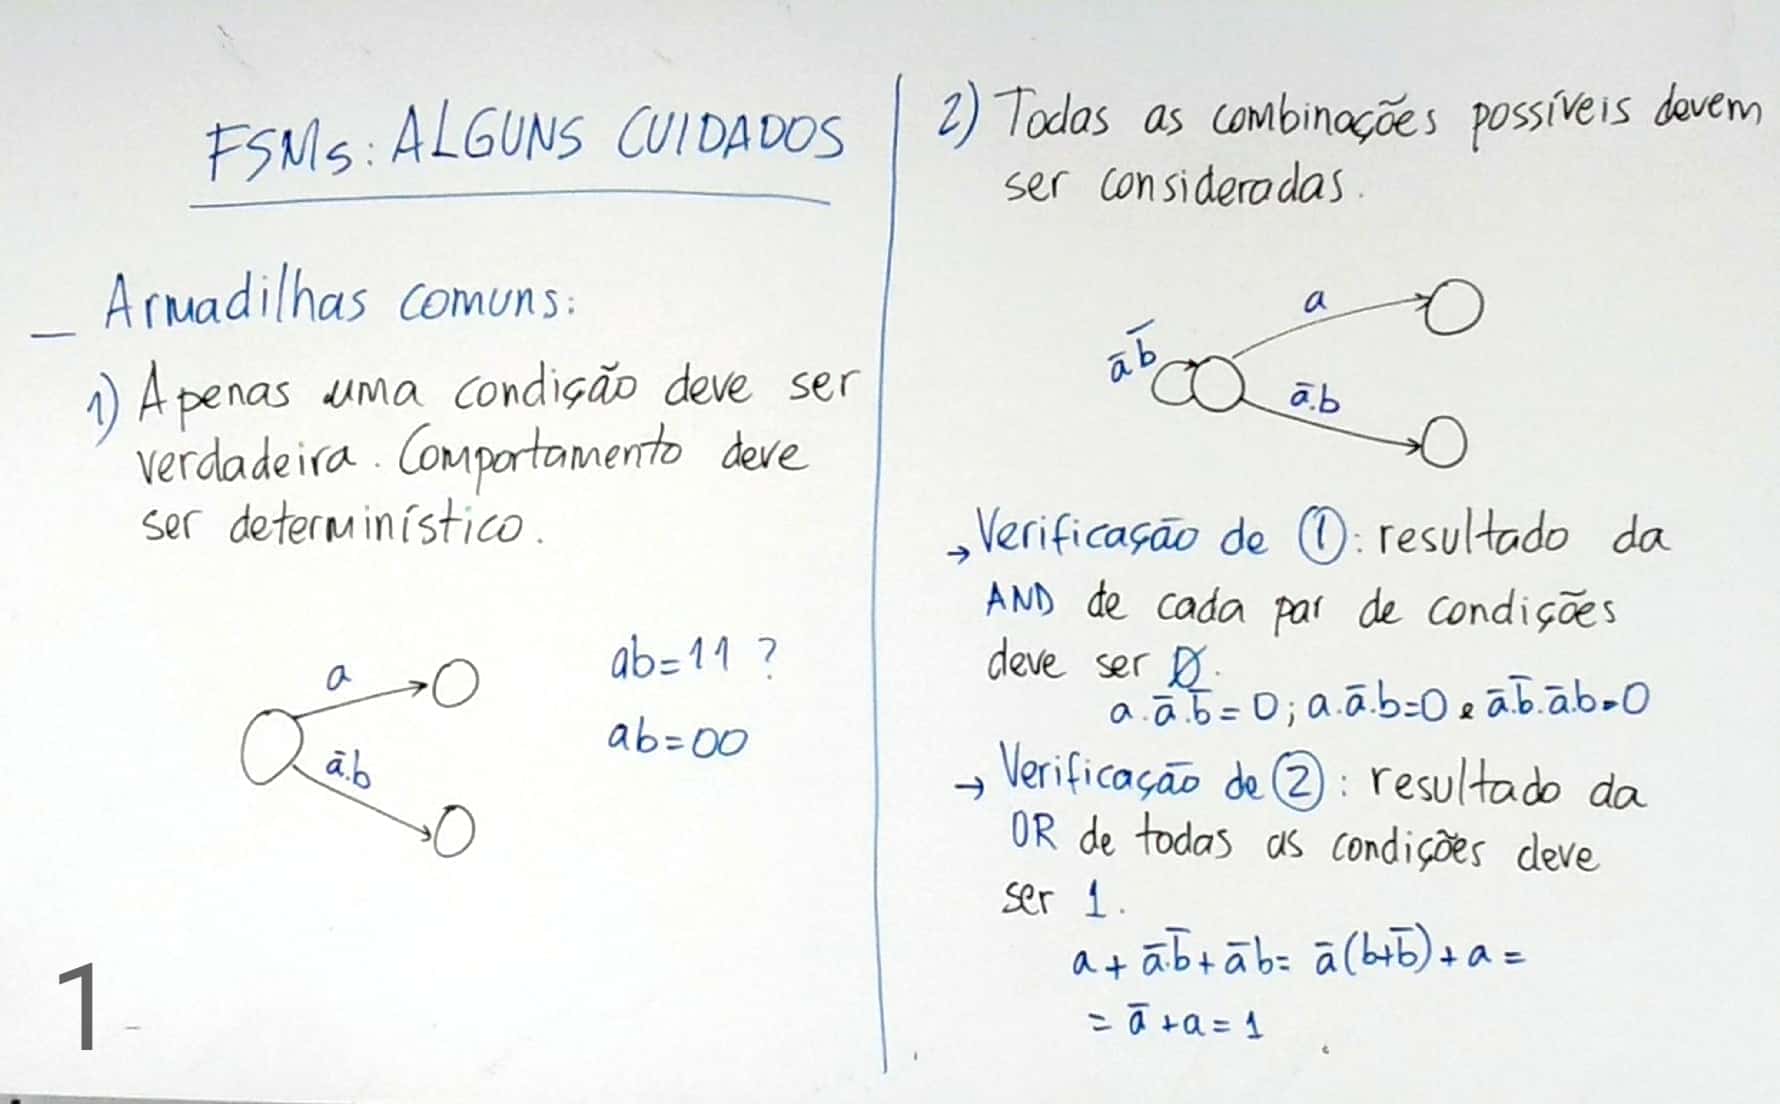 FSMs: ALGUNS CUIDADOS
Armadilhas comuns:
1) Apenas uma condição deve ser
verdadeira. Comportamento deve
ser determinístico.
a
ā.b
ab=11 ?
ab=00
1
2) Todas as combinações possíveis devem
ser consideradas.
a
ā b̄
ā.b
→ Verificação de ①: resultado da
AND de cada par de condições
deve ser 0.
a.ā.b̄=0; a.ā.b=0 e ā.b̄.ā.b=0
→ Verificação de ②: resultado da
OR de todas as condições deve
ser 1.
a + ā.b̄ + āb= ā(b+b̄) + a =
= ā + a = 1